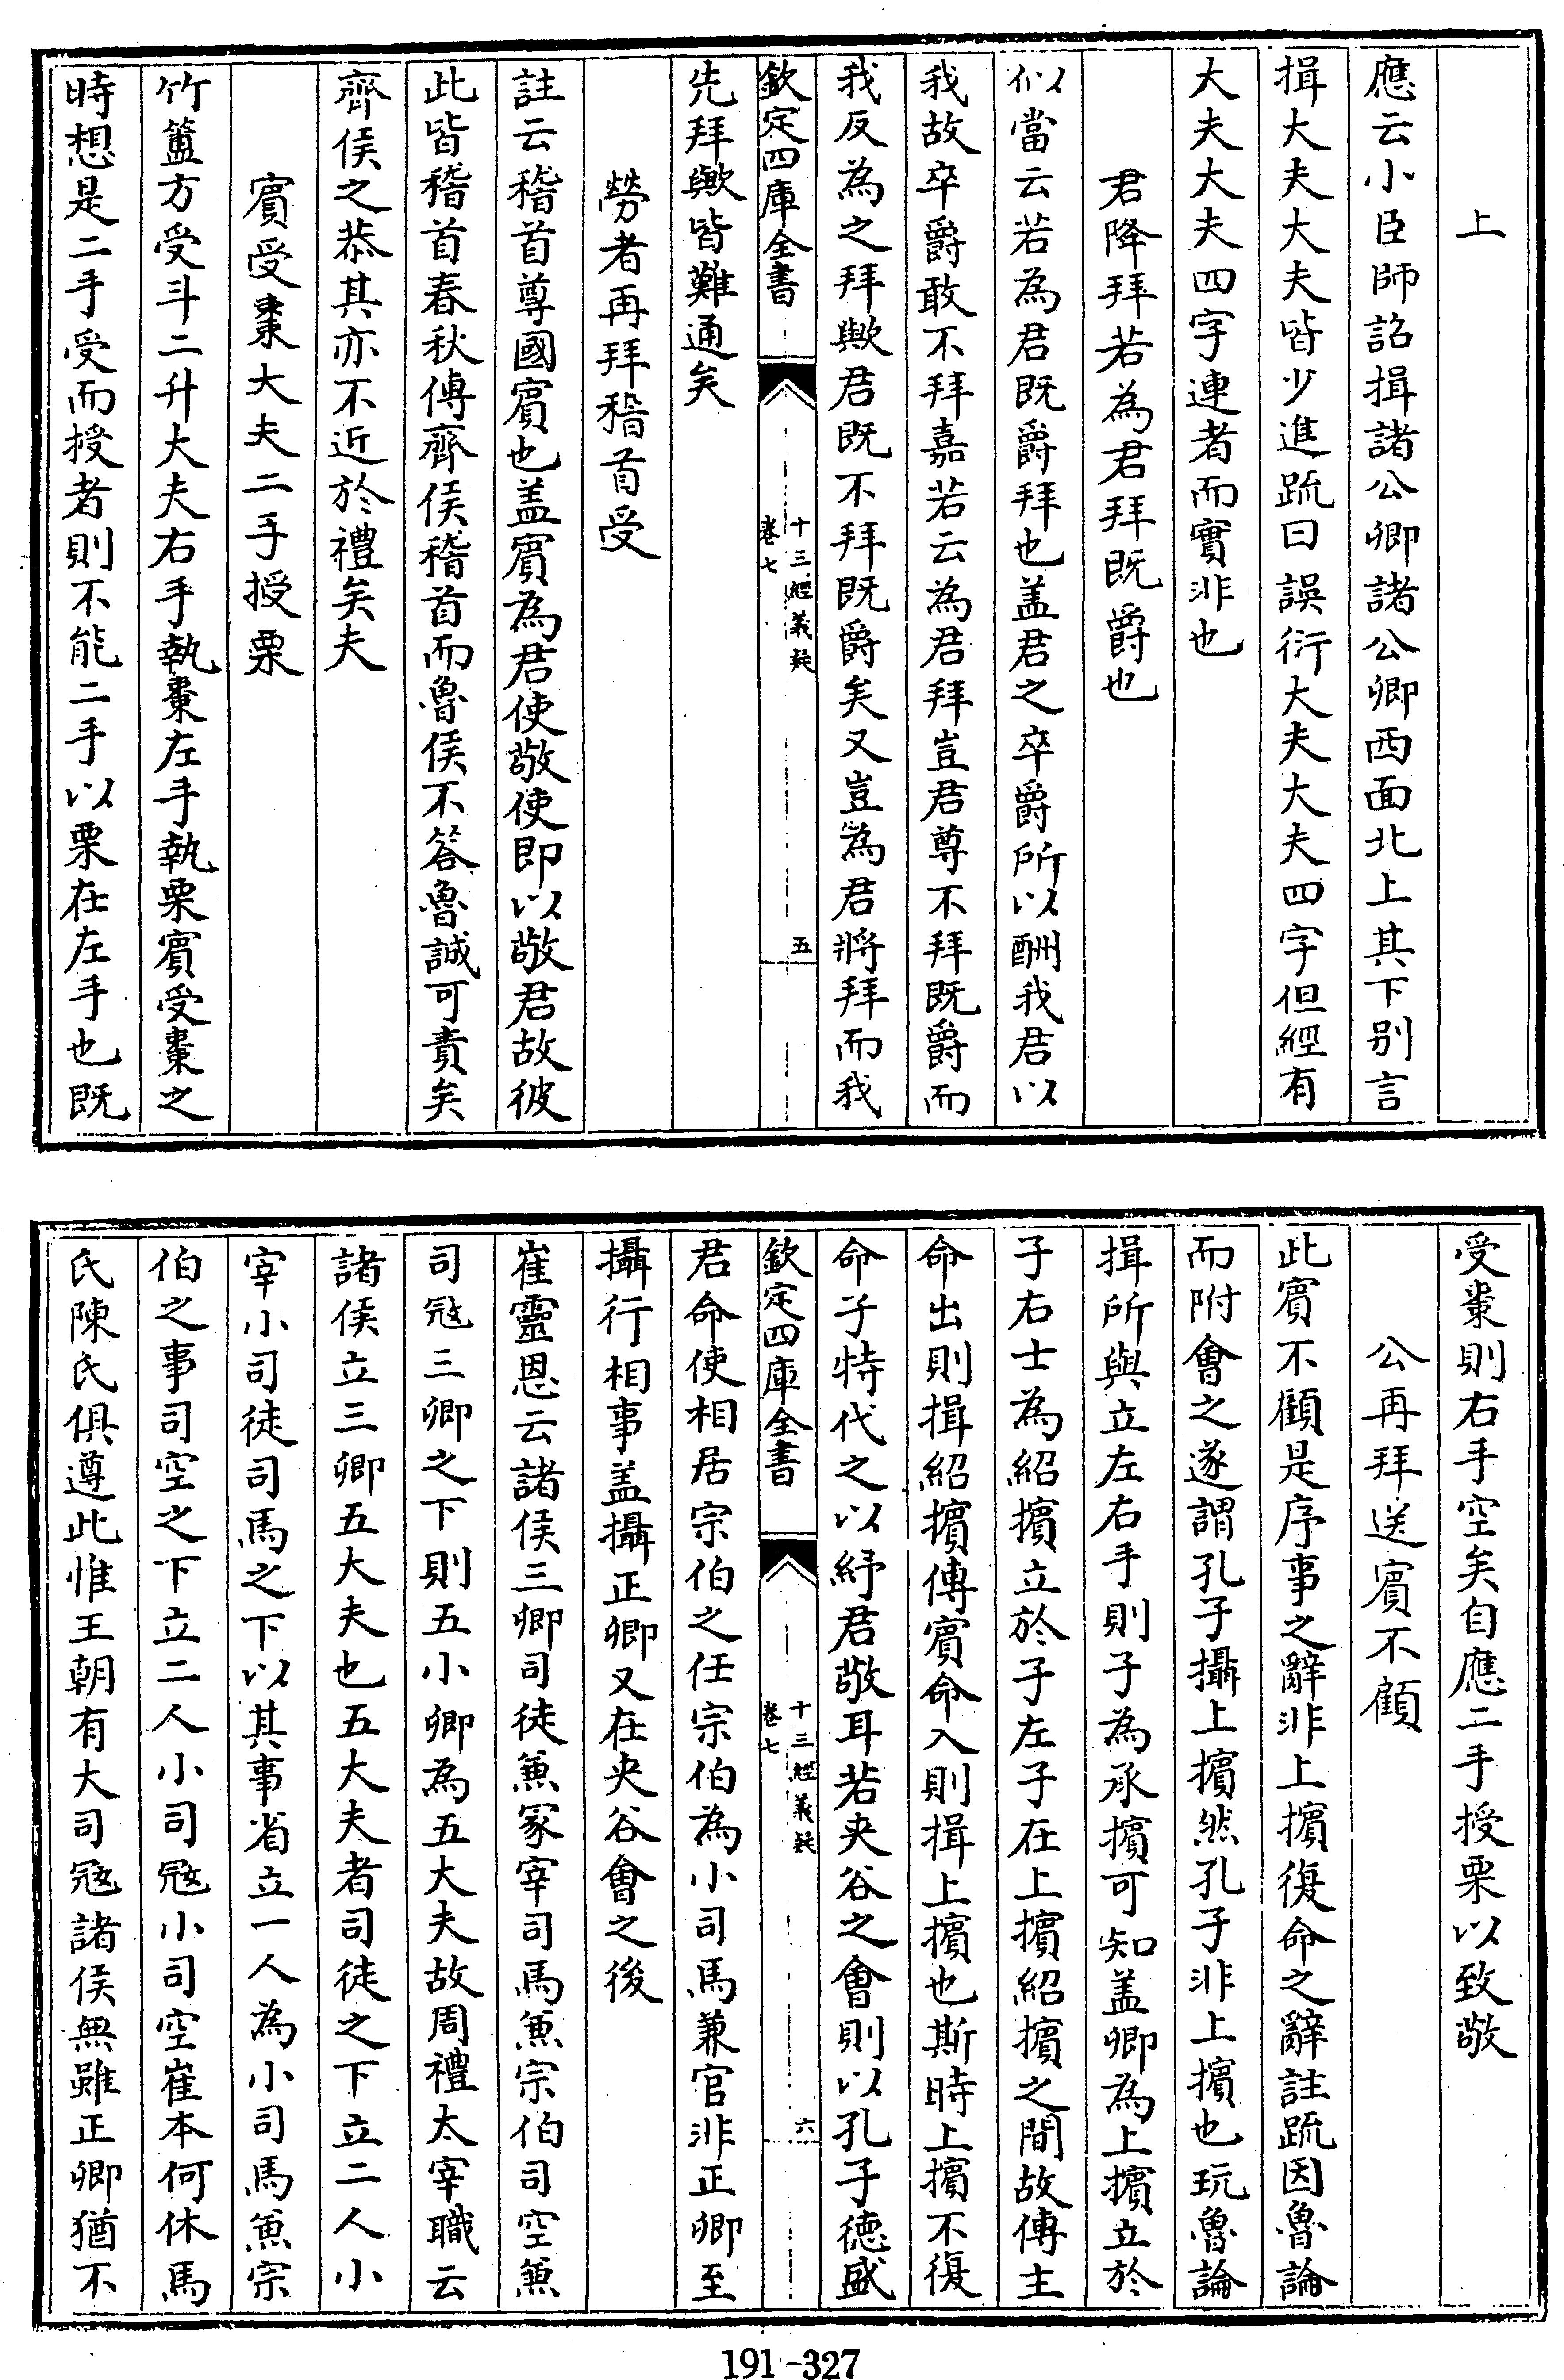 上
應云小臣師詔揖諸公卿諸公卿西面北上其下别言
揖大夫大夫皆少進䟽曰誤衍大夫大夫四字但經有
大夫大夫四字連者而實非也
君降拜若為君拜既爵也
似當云若為君既爵拜也盖君之卒爵所以酬我君以
我故卒爵敢不拜嘉若云為君拜豈君尊不拜既爵而
我反為之拜歟君既不拜既爵矣又豈為君將拜而我
欽定四庫全書
十三經義疑
卷七
五
先拜歟皆難通矣
勞者再拜稽首受
註云稽首尊國賓也盖賓為君使敬使即以敬君故彼
此皆稽首春秋傳齊侯稽首而魯侯不答魯誠可責矣
齊侯之恭其亦不近於禮矣夫
賓受棗大夫二手授栗
竹簠方受斗二升大夫右手執棗左手執栗賓受棗之
時想是二手受而授者則不能二手以栗在左手也既
受棗則右手空矣自應二手授栗以致敬
公再拜送賓不顧
此賓不顧是序事之辭非上擯復命之辭註䟽因魯論
而附會之遂謂孔子攝上擯然孔子非上擯也玩魯論
揖所與立左右手則子為承擯可知盖卿為上擯立於
子右士為紹擯立於子左子在上擯紹擯之間故傳主
命出則揖紹擯傳賓命入則揖上擯也斯時上擯不復
命子特代之以紓君敬耳若夾谷之會則以孔子德盛
欽定四庫全書
十三經義疑
卷七
六
君命使相居宗伯之任宗伯為小司馬兼官非正卿至
攝行相事盖攝正卿又在夾谷會之後
崔靈恩云諸侯三卿司徒兼冢宰司馬兼宗伯司空兼
司寇三卿之下則五小卿為五大夫故周禮太宰職云
諸侯立三卿五大夫也五大夫者司徒之下立二人小
宰小司徒司馬之下以其事省立一人為小司馬兼宗
伯之事司空之下立二人小司寇小司空崔本何休馬
氏陳氏俱遵此惟王朝有大司寇諸侯無雖正卿猶不
191-327